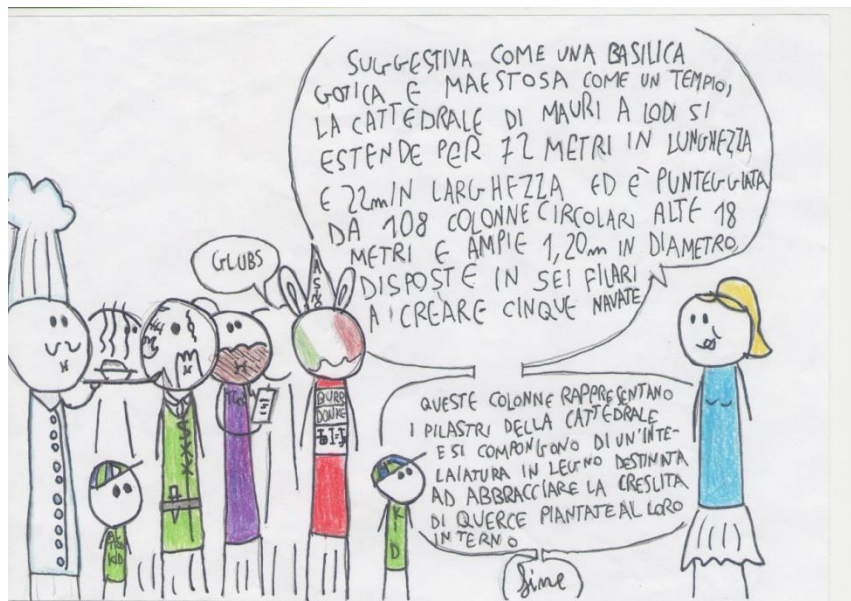 SUGGESTIVA COME UNA BASILICA
GOTICA E MAESTOSA COME UN TEMPIO,
LA CATTEDRALE DI MAURI A LODI SI
ESTENDE PER 72 METRI IN LUNGHEZZA
E 22m IN LARGHEZZA ED È PUNTEGGIATA
DA 108 COLONNE CIRCOLARI ALTE 18
METRI E AMPIE 1,20m IN DIAMETRO,
DISPOSTE IN SEI FILARI
A CREARE CINQUE NAVATE
GLUBS
QUESTE COLONNE RAPPRESENTANO
I PILASTRI DELLA CATTEDRALE
E SI COMPONGONO DI UN'INTE-
LAIATURA IN LEGNO DESTINATA
AD ABBRACCIARE LA CRESCITA
DI QUERCE PIANTATE AL LORO
INTERNO
fine
KID
KID